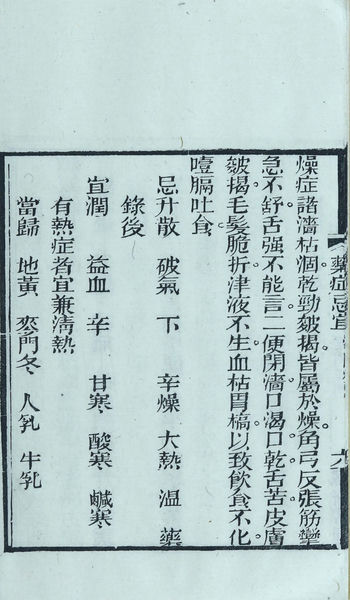 燥症諸濇枯涸乾勁皴揭皆屬於燥角弓反張筋攣
急不舒舌强不能言二便閉濇口渴口乾舌苦皮膚
皴揭毛髮脆折津液不生血枯胃槁以致飲食不化
噎膈吐食
忌升散 破氣 下 辛燥 大熱 温 藥
錄後
宜潤 益血 辛 甘寒 酸寒 鹹寒
有熱症者宜兼淸熱
當歸 地黃 麥門冬 人乳 牛乳
藥症忌宜
六